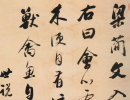 梁簡文入
右曰會心
木便自有
獸禽魚自
世說